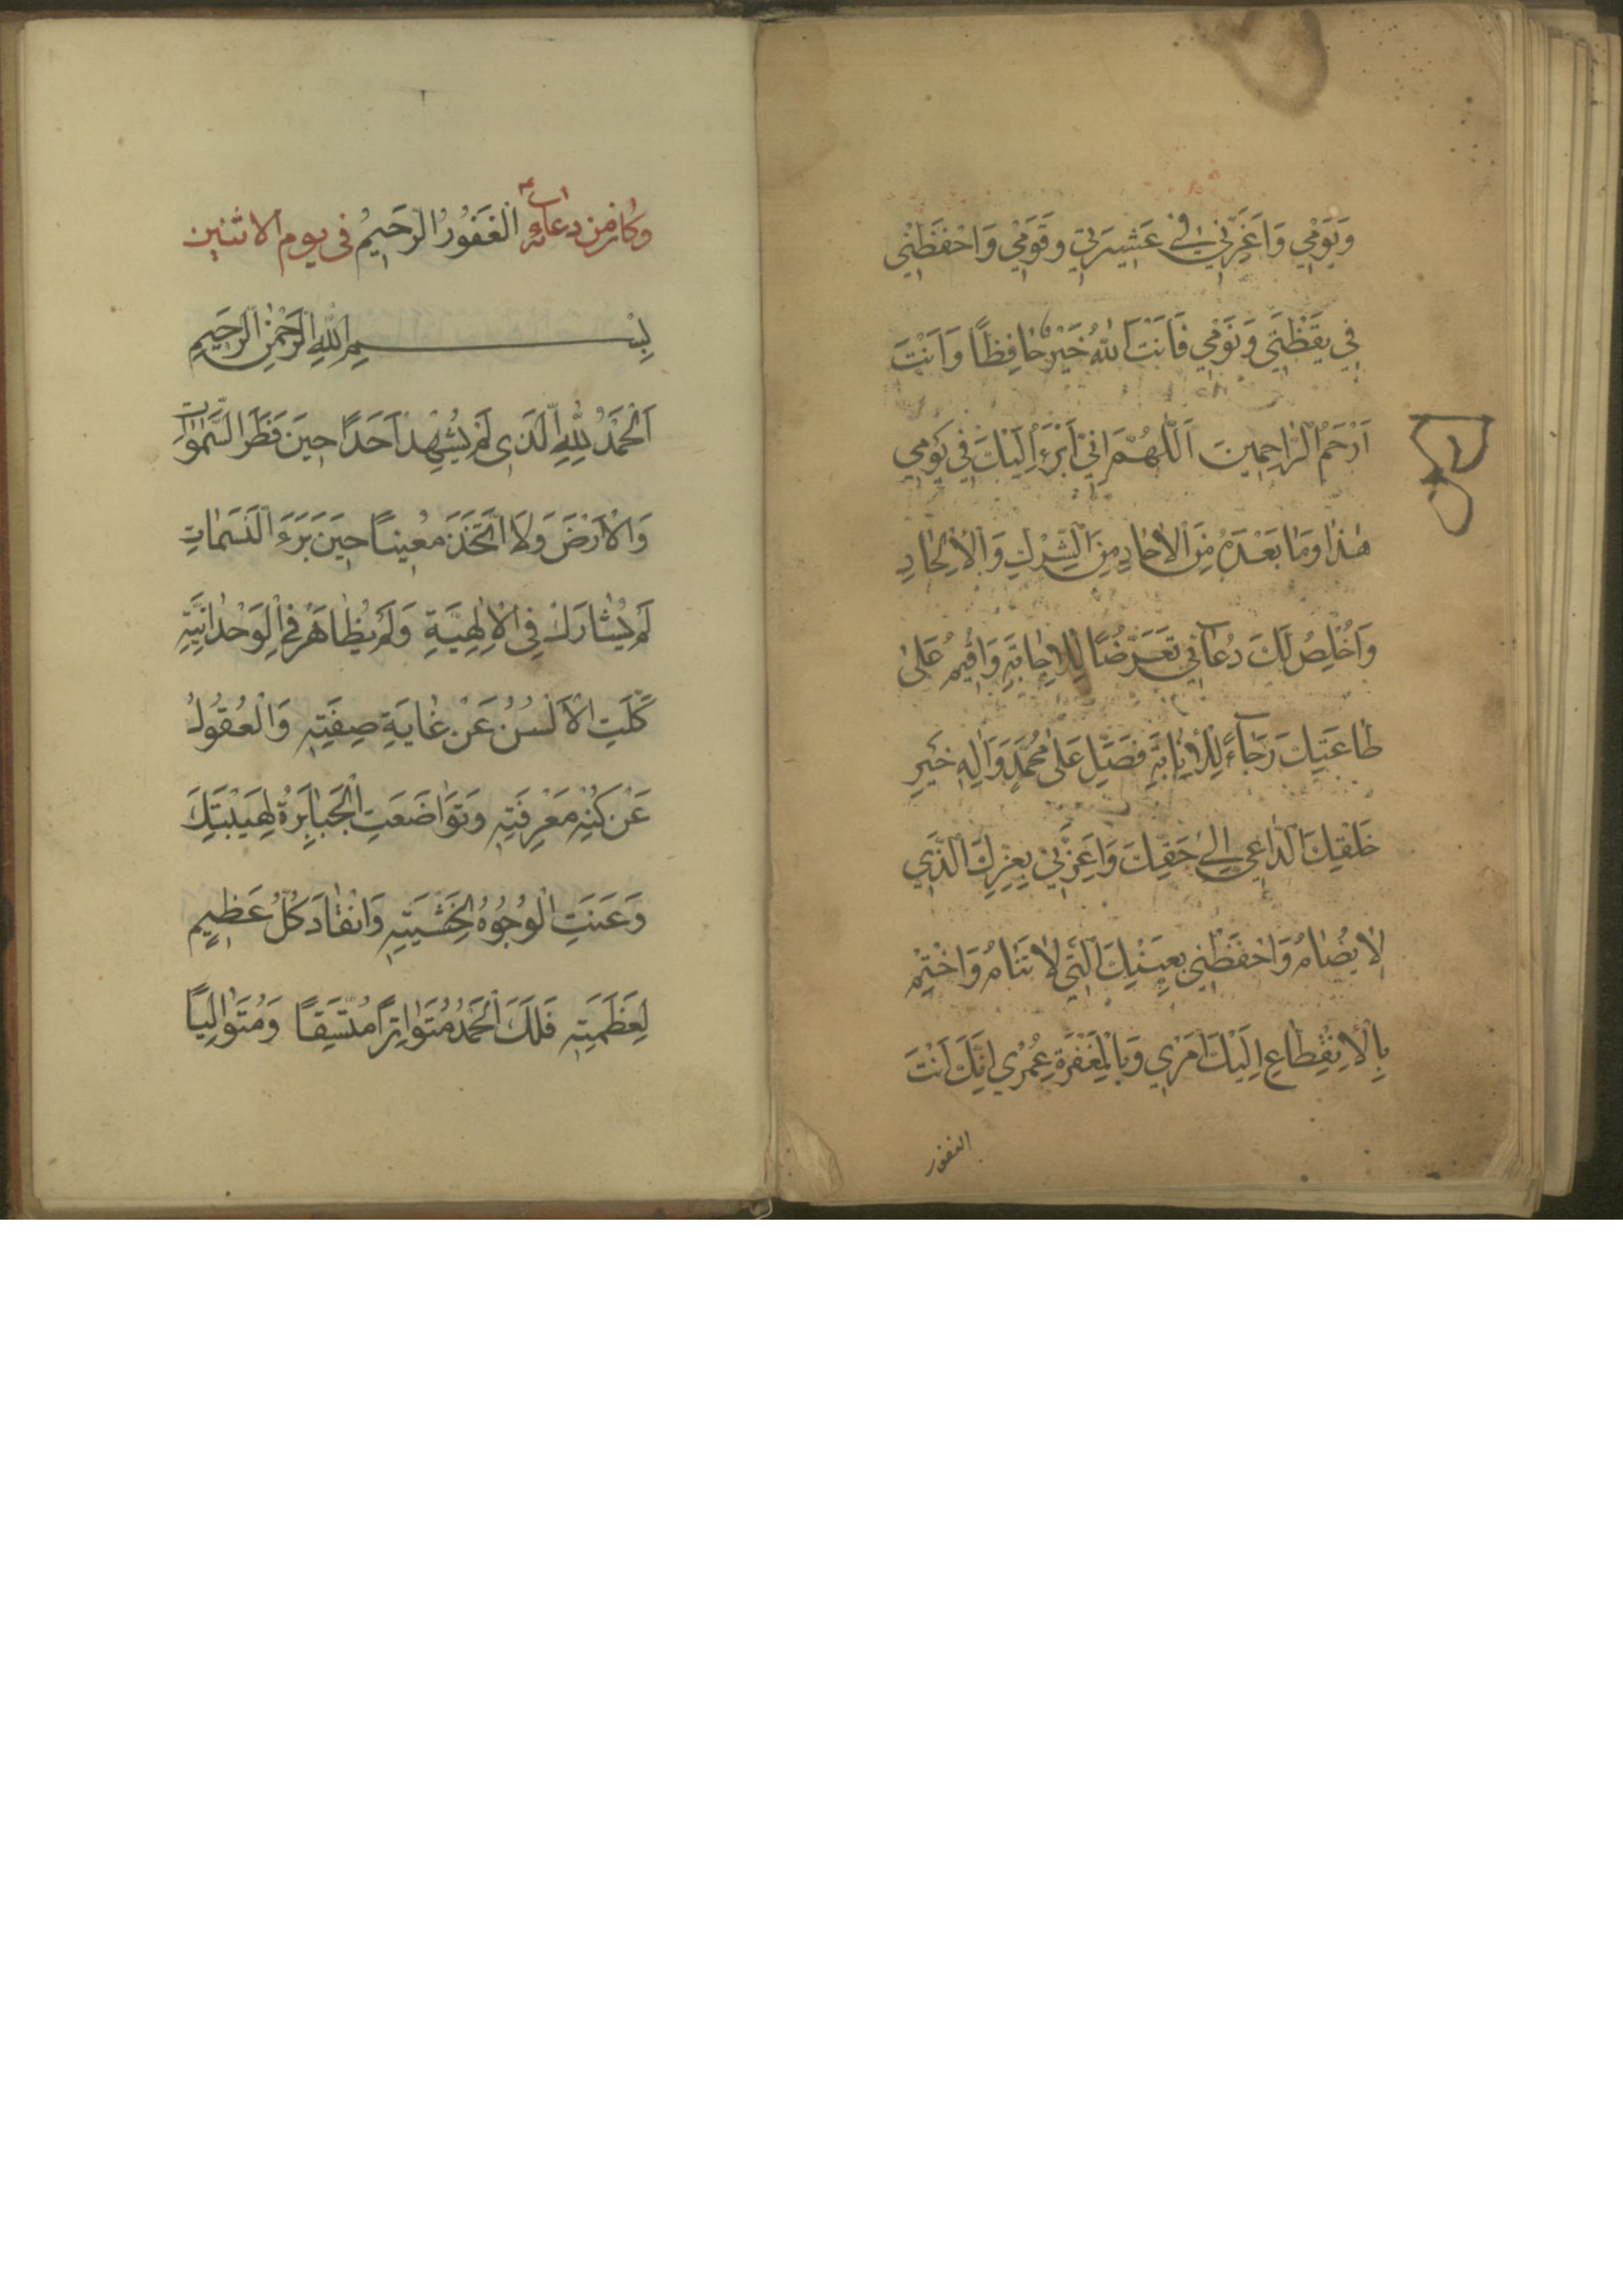 وَيَوْمِي وَاَعِزَّنِي فِي عَشِيرَتِي وَقَوْمِي وَاحْفَظْنِي
فِي يَقْظَتِي وَنَوْمِي فَاَنْتَ اللهُ خَيْرٌ حَافِظًا وَاَنْتَ
اَرْحَمُ الرَّاحِمِينَ اَللّٰهُمَّ اِنِّي اَبْرَءُ اِلَيْكَ فِي يَوْمِي
هٰذَا وَمَا بَعْدَهُ مِنَ الْاٰحَادِ مِنَ الشِّرْكِ وَالْاِلْحَادِ
وَاُخْلِصُ لَكَ دُعَائِي تَعَرُّضًا لِلْاِجَابَةِ وَاُقِيمُ عَلٰى
طَاعَتِكَ رَجَاءً لِلْاِثَابَةِ فَصَلِّ عَلٰى مُحَمَّدٍ وَاٰلِهِ خَيْرِ
خَلْقِكَ الدَّاعِي اِلٰى حَقِّكَ وَاَعِزَّنِي بِعِزِّكَ الَّذِي
لَا يُضَامُ وَاحْفَظْنِي بِعَيْنِكَ الَّتِي لَا تَنَامُ وَاخْتِمْ
بِالْاِنْقِطَاعِ اِلَيْكَ اَمْرِي وَبِالْمَغْفِرَةِ عُمُرِي اِنَّكَ اَنْتَ
الغفور
وكان من دعائه اَلْغَفُورُ الرَّحِيمُ فى يوم الاثنين
بِسْمِ اللهِ الرَّحْمٰنِ الرَّحِيمِ
اَلْحَمْدُ لِلّٰهِ الَّذِى لَمْ يُشْهِدْ اَحَدًا حِينَ فَطَرَ السَّمٰوَاتِ
وَالْاَرْضَ وَلَا اتَّخَذَ مُعِينًا حِينَ بَرَءَ النَّسَمَاتِ
لَمْ يُشَارَكْ فِى الْاِلٰهِيَّةِ وَلَمْ يُظَاهَرْ فِى الْوَحْدَانِيَّةِ
كَلَّتِ الْاَلْسُنُ عَنْ غَايَةِ صِفَتِهِ وَالْعُقُولُ
عَنْ كُنْهِ مَعْرِفَتِهِ وَتَوَاضَعَتِ الْجَبَابِرَةُ لِهَيْبَتِكَ
وَعَنَتِ الْوُجُوهُ لِخَشْيَتِهِ وَانْقَادَ كُلُّ عَظِيمٍ
لِعَظَمَتِهِ فَلَكَ الْحَمْدُ مُتَوَاتِرًا مُتَّسِقًا وَمُتَوَالِيًا